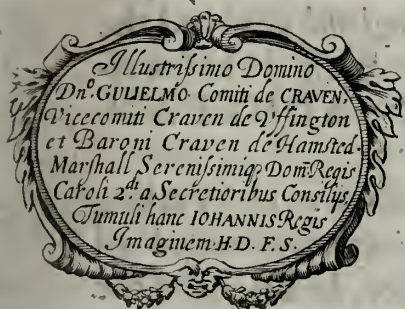 Illustrissimo Domino
Dn.º GULIELMO Comiti de CRAVEN,
Vicecomiti Craven de Vffington
et Baroni Craven de Hamsted
Marshall Serenissimiq; Domⁱ Regis
Caroli 2.di a Secretioribus Consilijs,
Tumuli hanc IOHANNIS Regis
Imaginem H. D. F. S.